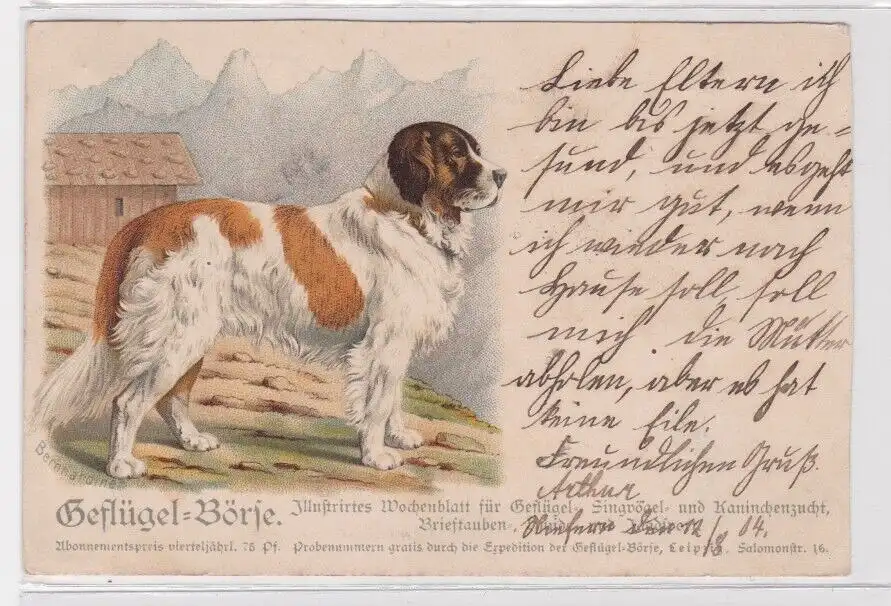 Liebe Eltern ich
bin bis jetzt ge=
sund, und es geht
mir gut, wenn
ich wieder nach
Hause soll, soll
mich die Mutter
abholen, aber es hat
keine Eile.
Freundlichen Gruß.
Arthur
den 12/8 04.
Geflügel=Börse.
Illustrirtes Wochenblatt für Geflügel-, Singvögel- und Kaninchenzucht,
Brieftauben-
Abonnementspreis vierteljährl. 75 Pf. Probenummern gratis durch die Expedition der Geflügel-Börse, Leipzig, Salomonstr. 16.